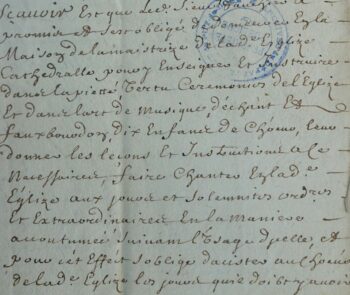 Scavoir Est que led. Sieur
promis et s'est obligé de demeurer En la
Maison de la maistrize de lad.e Eglize
Cathedralle, pour y Enseigner et Instruire
dans la pietté Vertu Ceremonies de l'Eglize
Et dans l'art de Musique, déchant Et
fauxbourdon, dix Enfans de Chœur, leur
donner les leçons et Instructions a ce
Necessaires, faire Chanter En lad.e
Eglize aux jours et solemnités ordres
Et Extraordinaires En la Maniere
accoutumée suivant l'Usage d'jcelle, et
pour cet Effect s'oblige d'assister au Chœur
de lad.e Eglize les jours qu'il doibt y avoir